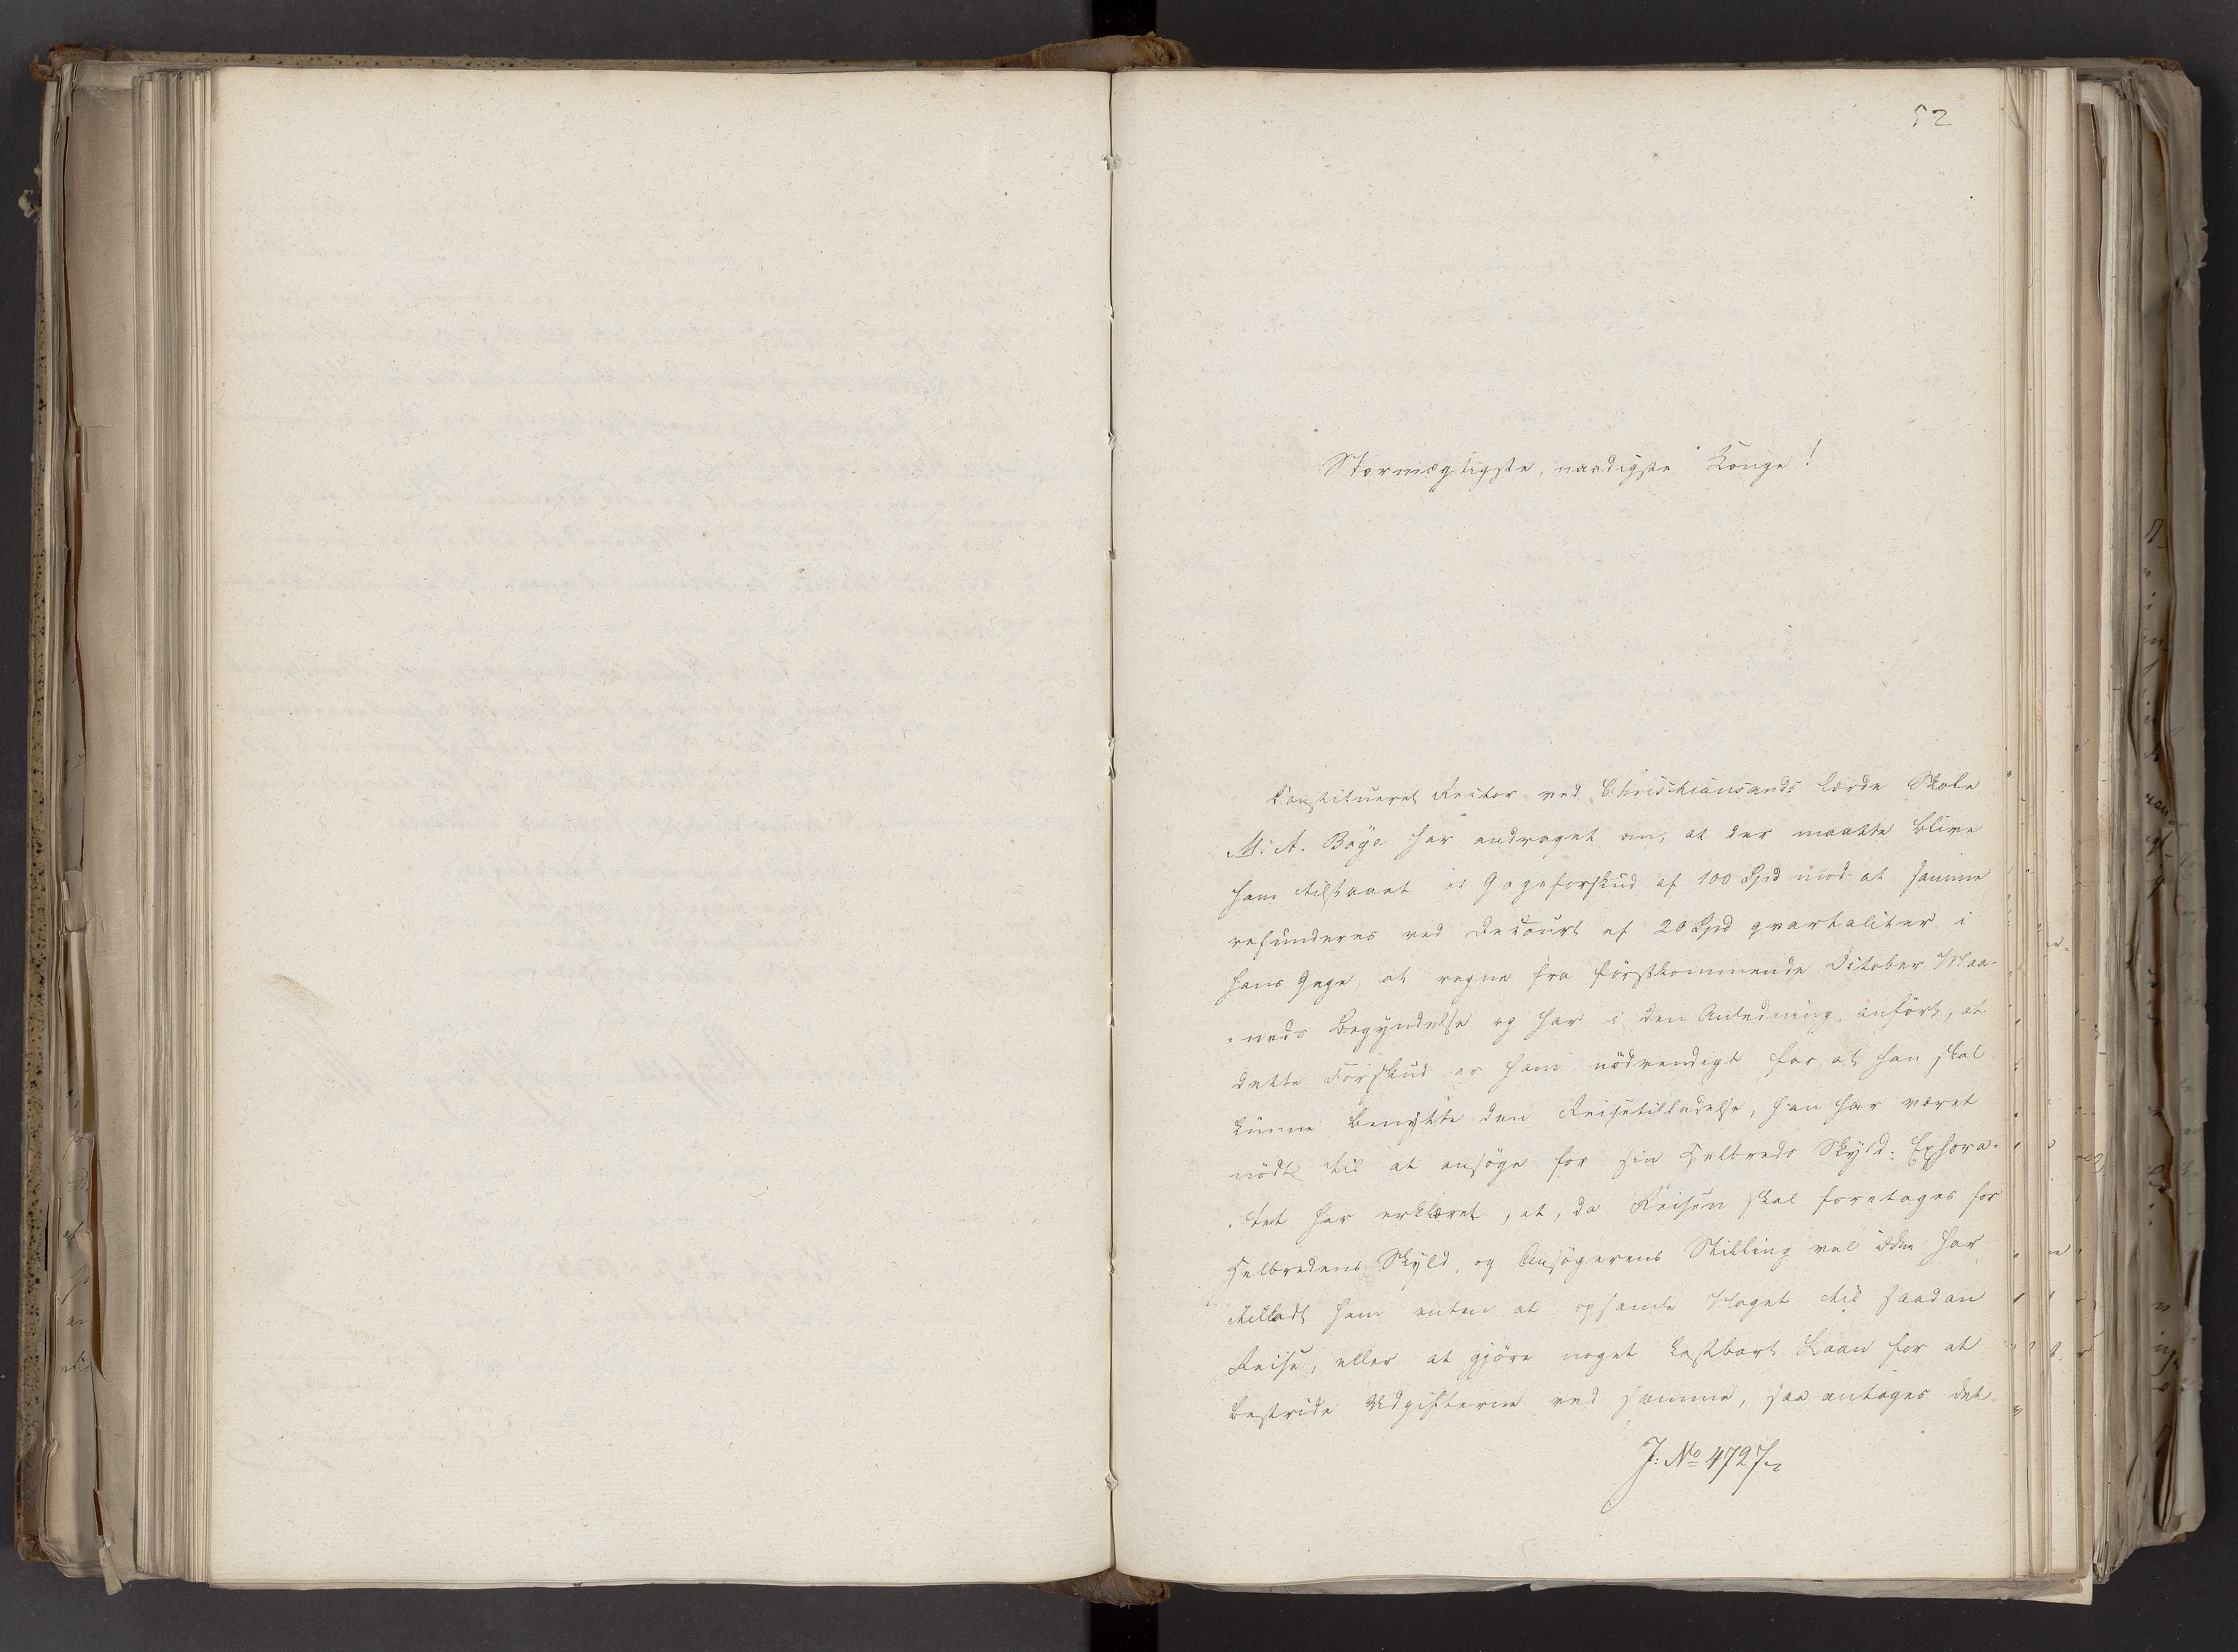 52
Stormægtigste, naadigste Konge!
Constitueret Rector ved Christiansands lærde Skole
M. A. Böye har andraget om, at der maatte blive
ham tilstaaet et Gageforskud af 100 Spd mod at samme
refunderes ved Decourt af 20 Spd qvartaliter i
hans Gage, at regne fra förstkommende October Maa-
neds Begyndelse og har i den Anledning anfört, at
dette Forskud er ham nödvendigt for at han skal
kunne benytte den Reisetilladelse, han har været
nödt til at ansöge for sin Helbreds Skyld. Ephora-
tet har erklæret, at, da Reisen skal foretages for
Helbredens Skyld, og Ansögerens Stilling vel ikke har
tilladt ham enten at opsamle Noget til saadan
Reise, eller at gjöre noget kostbart Laan for at
bestride Udgifterne ved samme, saa antages det
J: No 4727